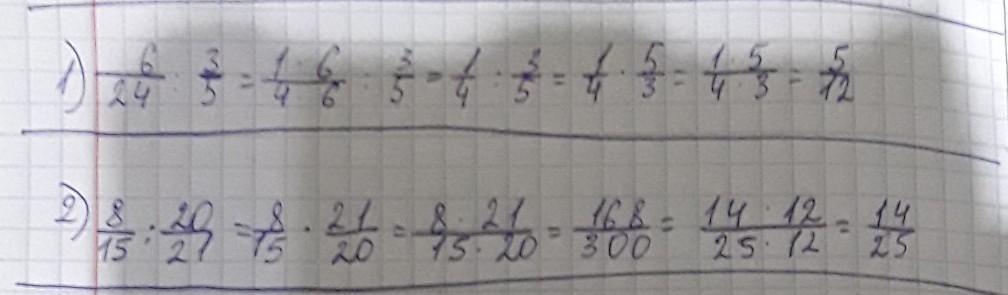 1) 6/24 : 3/5 = 1·6/4·6 : 3/5 = 1/4 : 3/5 = 1/4 · 5/3 = 1·5/4·3 = 5/12
2) 8/15 : 20/21 = 8/15 · 21/20 = 8·21/15·20 = 168/300 = 14·12/25·12 = 14/25